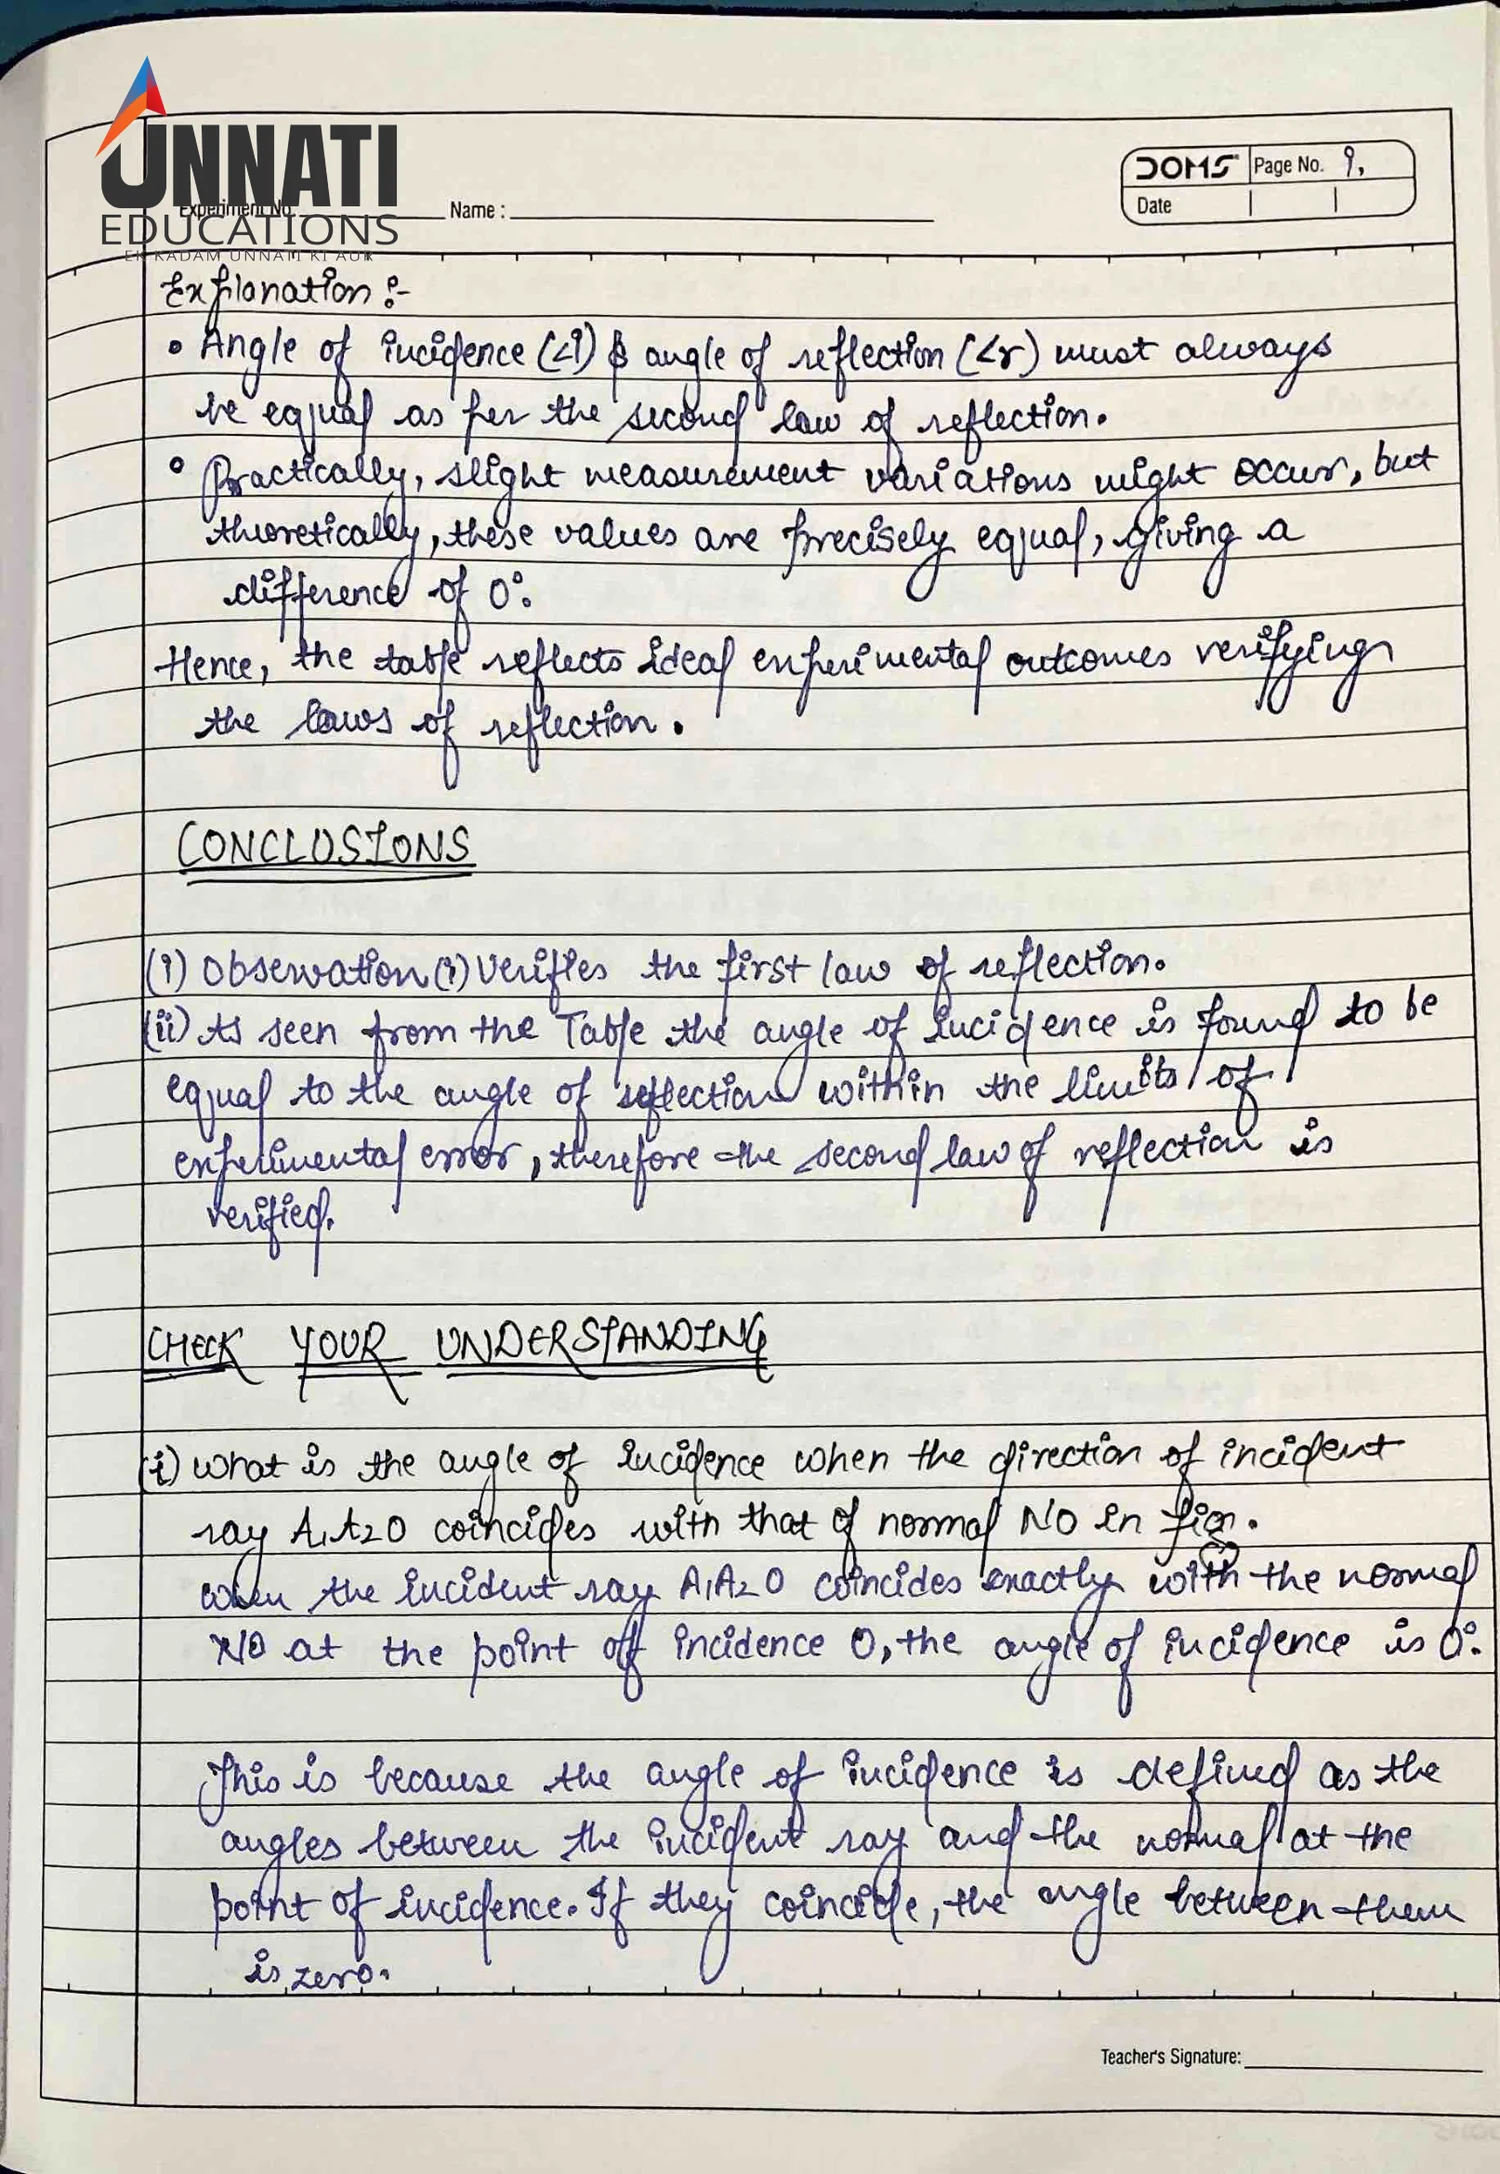 UNNATI
EDUCATIONS
EK KADAM UNNATI KI AUR
DOMS Page No. 9.
Date
Experiment No. Name :
Explanation :-
• Angle of incidence (∠i) & angle of reflection (∠r) must always
be equal as per the second law of reflection.
• Practically, slight measurement variations might occur, but
theoretically, these values are precisely equal, giving a
difference of 0°.
Hence, the table reflects ideal experimental outcomes verifying
the laws of reflection.
CONCLUSIONS
(i) Observation (i) verifies the first law of reflection.
(ii) As seen from the Table the angle of incidence is found to be
equal to the angle of reflection within the limits of
experimental error, therefore the second law of reflection is
verified.
CHECK YOUR UNDERSTANDING
(i) What is the angle of incidence when the direction of incident
ray A₁A₂O coincides with that of normal NO in fig.
when the incident ray A₁A₂O coincides exactly with the normal
NO at the point of incidence O, the angle of incidence is 0°.
This is because the angle of incidence is defined as the
angles between the incident ray and the normal at the
point of incidence. If they coincide, the angle between them
is zero.
Teacher's Signature: